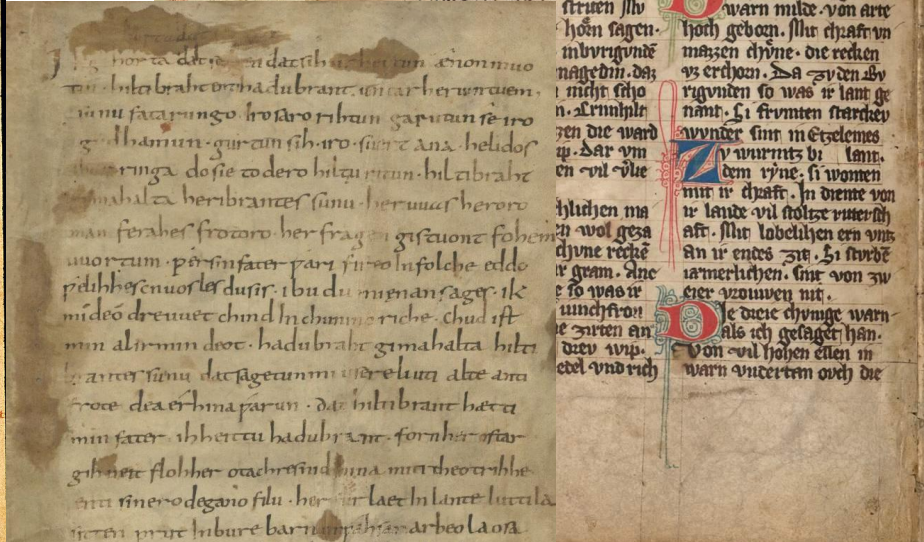 gihorta dat seggen dat sih urhettun ænon muo
tin · hiltibraht enti hadubrant untar heriuntuem ·
sunu fatarungo · iro saro rihtun garutun se iro
gudhamun · gurtun sih · iro · suert ana · helidos
ringa do sie to dero hiltu ritun · hiltibraht
gimahalta heribrantes sunu · her uuas heroro
man ferahes frotoro · her fragen gistuont fohem
uuortum · ƿer sin fater ƿari fireo In folche eddo
ƿelihhes cnuosles du sis · ibu du mi enan sages · ik
mi deo dre uuet chind In chunincriche · chud ist
min al irmin deot · hadubraht gimahalta hilti
brantes sunu dat sagetun mi usere liuti alte anti
frote dea erhina ƿarun · dat hiltibrant hætti
min fater · ih heittu hadubrant · forn her ostar
gihueit floh her otachres nid hina miti theotrihhe
enti sinero degano filu · her furlaet In lante luttila
sitten prut In bure barn unƿahsan arbeo laosa
strvten Mv
horn sagen ·
in bvrigvnde
magedin · daz
nicht scho
n · Crimhilt
zen die ward
wip · Dar vm
en vil vlie
hlichen ma
en wol geza
chvne recken
r gram · Ane
e so was ir
ivnchfrow
e zirten an
drey wip ·
edel vnd rich
warn milde · von arte
hoch geborn · Mit chraft vn
mazzen chvne · die recken
vz erchorn · Da zv den Bv
rigvnden so was ir lant ge
nant · Si frvmten starckev
wvnder sint in Etzelenes
Zv wurmtz bi lant ·
dem ryne · si wonten
mit ir chraft · In diente von
ir lande vil stoltze ritersch
aft · Mit lobelihen ern vntz
an ir endes zit · Si stvrben
iæmerlichen · sint von zw
eier vrouwen nit ·
Die dreie chvnige warn
als ich gesaget han ·
Von vil hohen ellen in
warn vndertan ovch die